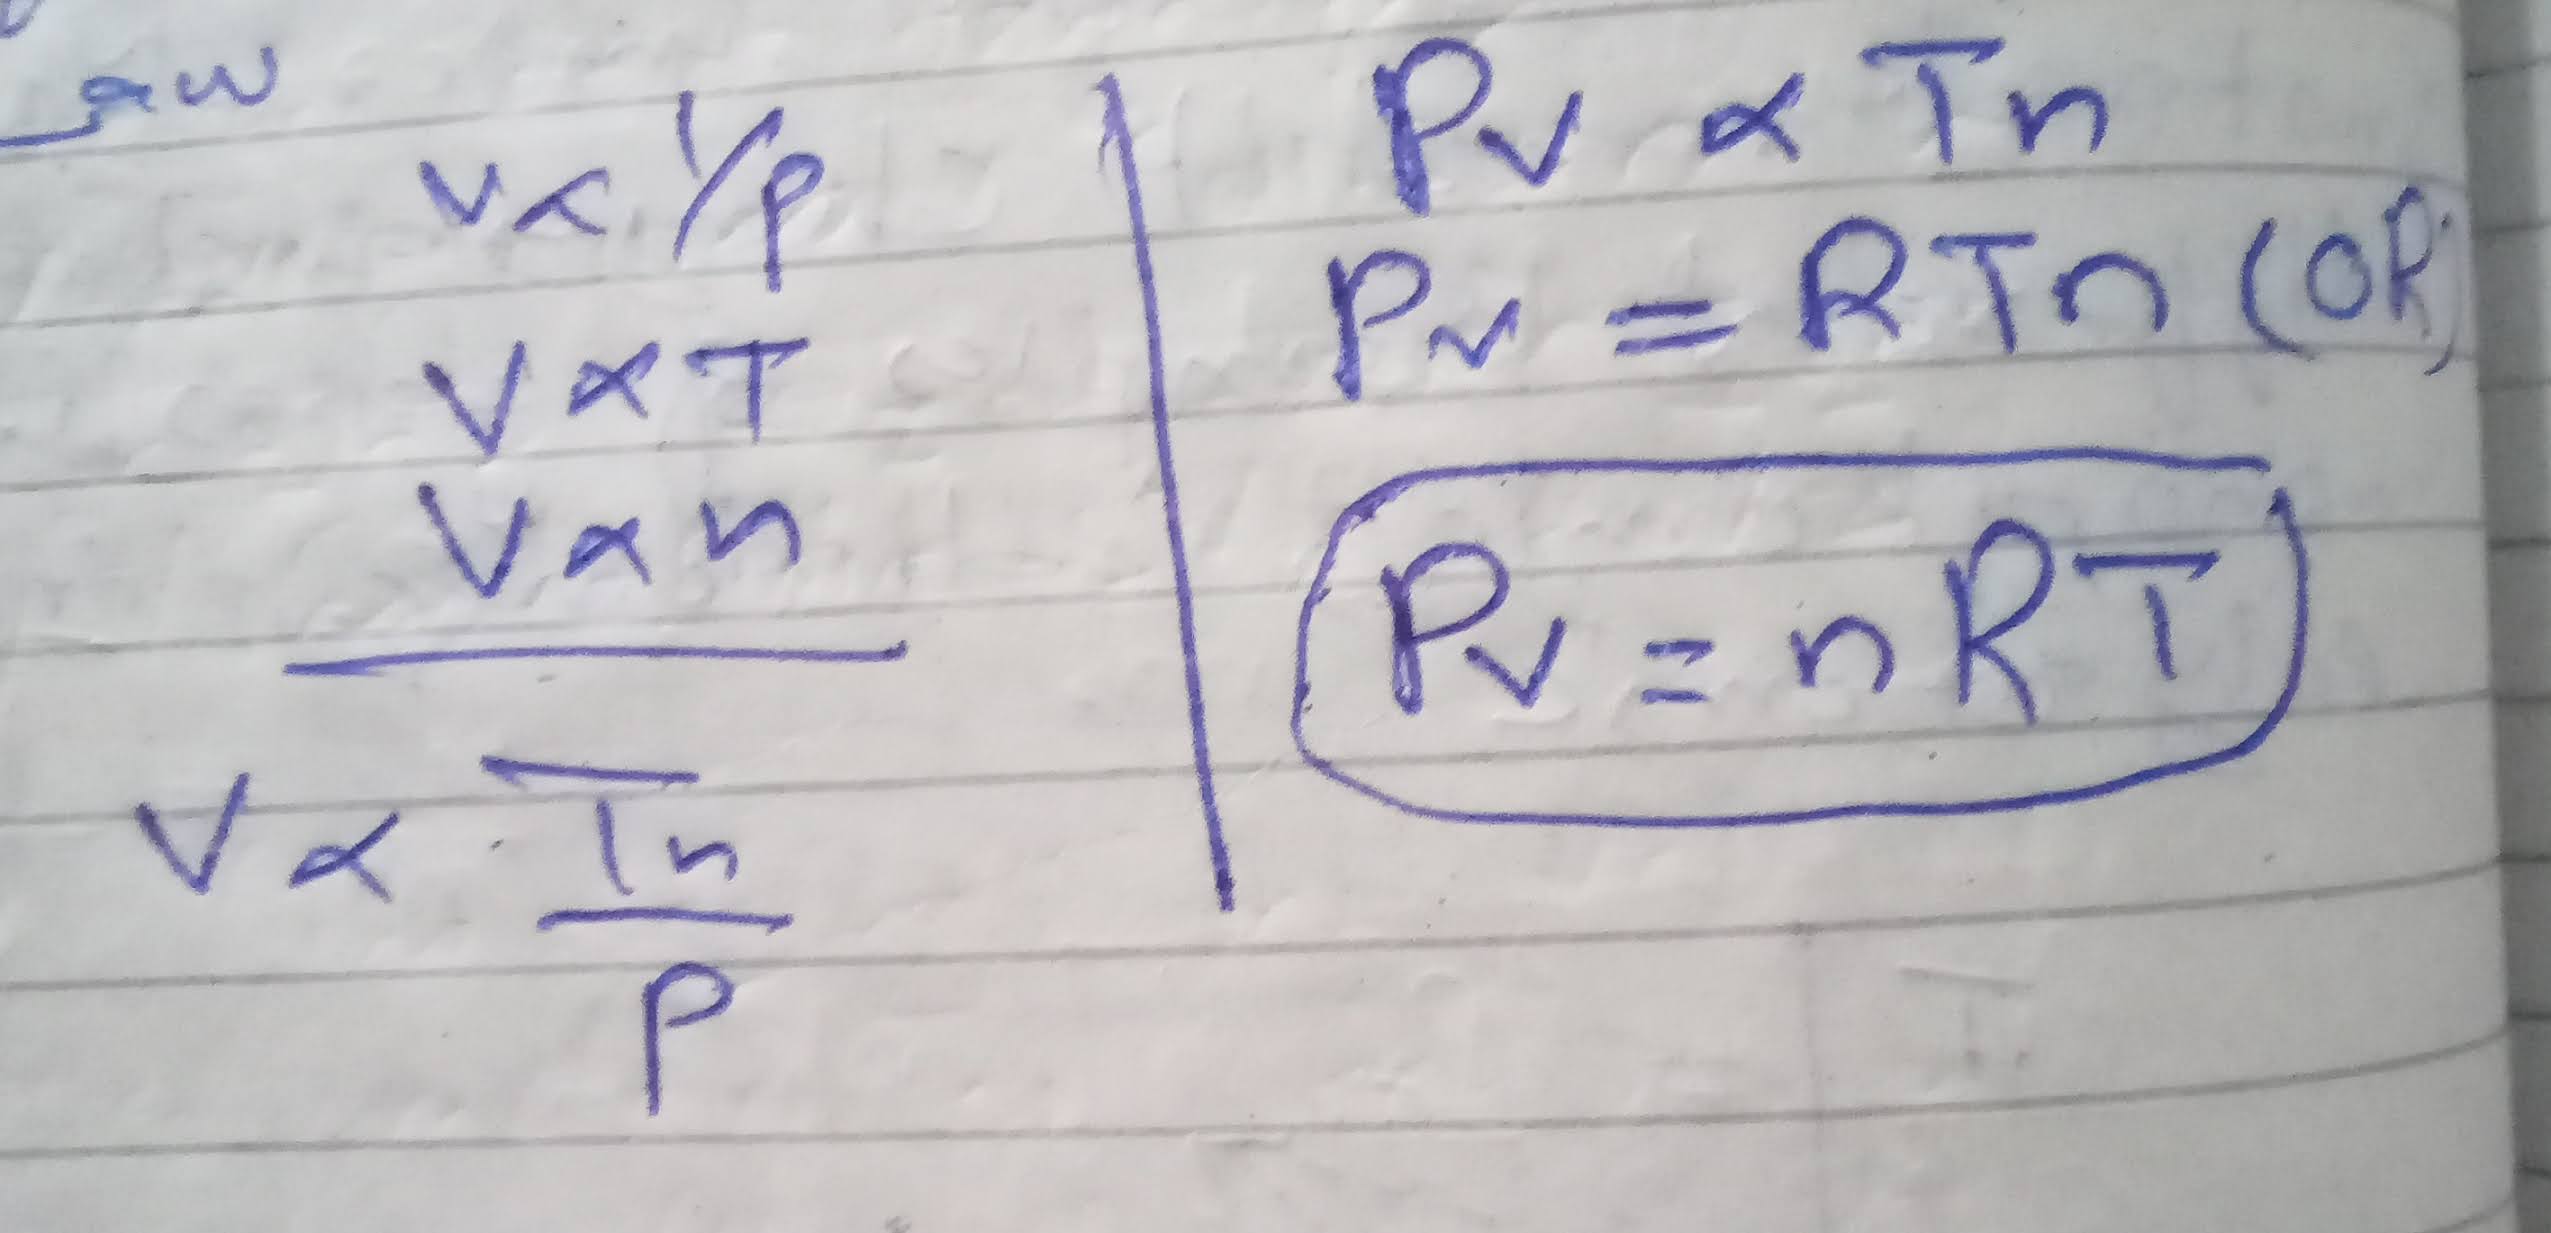 Law
V ∝ 1/P
V ∝ T
V ∝ n
V ∝ Tn
P
PV ∝ Tn
PV = RTn (OR)
PV = nRT